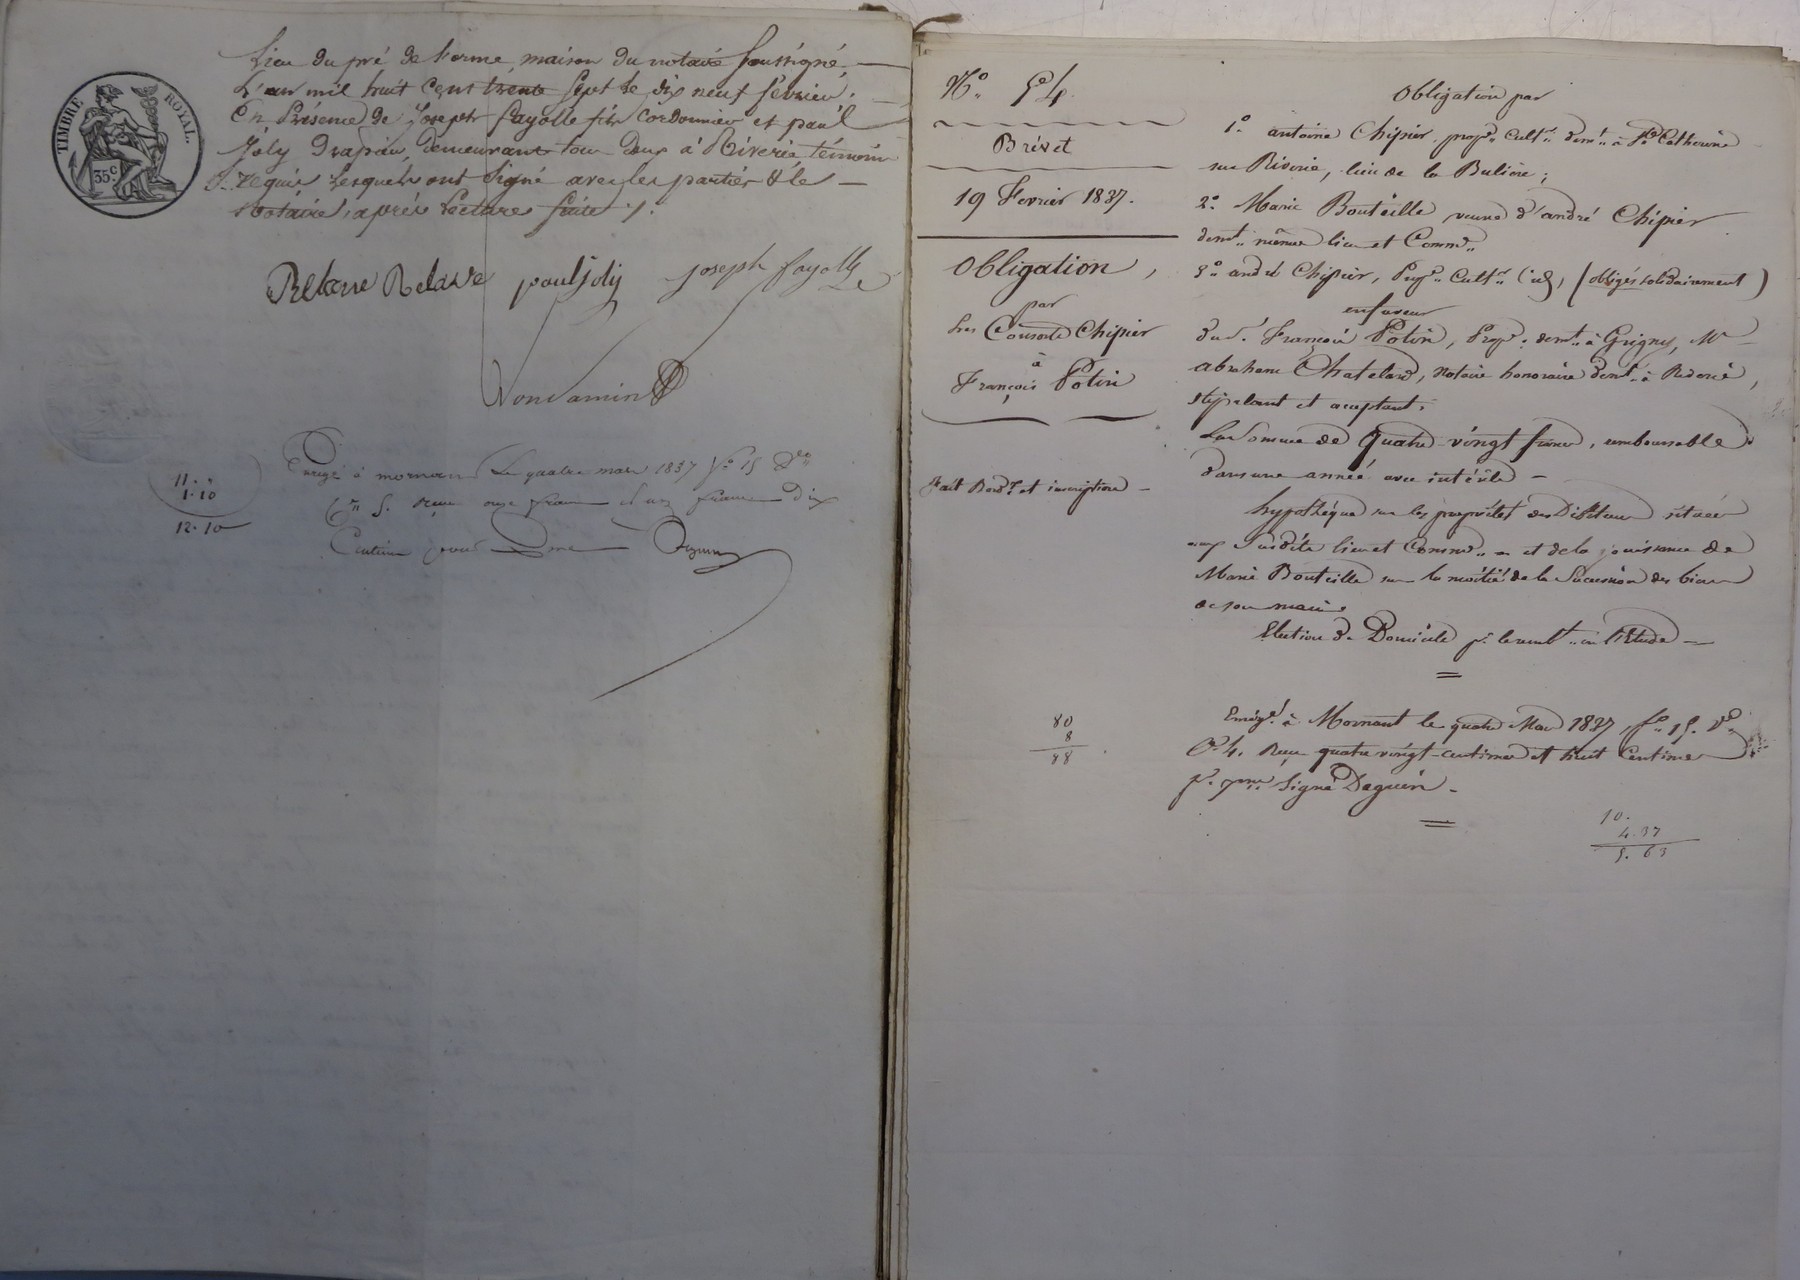 TIMBRE ROYAL
35 c.
Lieu du pré de lorme, maison du notaire soussigné,
L'an mil huit cent trente sept le dix neuf février.
En Présence de Joseph fayolle fils cordonnier et paul
Joly Drapier, demeurant tous deux à Riverie témoins
requis lesquels ont signé avec les parties & le
Notaire, après lecture faite ./.
Relave Relave paul joly joseph fayolle
Condamin
Enregé à mornant Le quatre mars 1837 fo 15
Cse 5. reçu onze francs et un franc dix
Centimes pour Dme Daguin
11. "
1. 10
12. 10
No. 54.
Brevet
19 Fevrier 1837.
Obligation,
par
Les Consorts Chipier
à
François Potin
fait Bordx et inscription
Obligation par
1o. antoine Chipier propre. cultr. demt. à Ste Catherine
sur Riverie, lieu de la Bulière;
2o. Marie Bouteille veuve d'andré Chipier
demt. même lieu et Commne.
3o. andré Chipier, Propre. Cultr. (id) (obligés solidairement)
en faveur
du sr. François Potin, Propre. demt. à Grigny, Me
abraham Chatelard, notaire honoraire demt. à Riverie,
stipulant et acceptant.
La somme de quatre vingt francs, remboursable
dans une année avec intérêts
hypothèque sur les propriétés des Débiteurs situées
aux susdits lieu et Commne. et de la jouissance de
Marie Bouteille sur la moitié de la succession des biens
de son mari.
Election de Domicile pr. le remt. en l'Etude
Enregé. à Mornant le quatre Mars 1837, fo. 15. Vo.
Ce. 4. Reçu quatre vingt centimes et huit Centimes
pr. 10me. Signé Daguin
80
8
88
10.
4. 37
5. 63